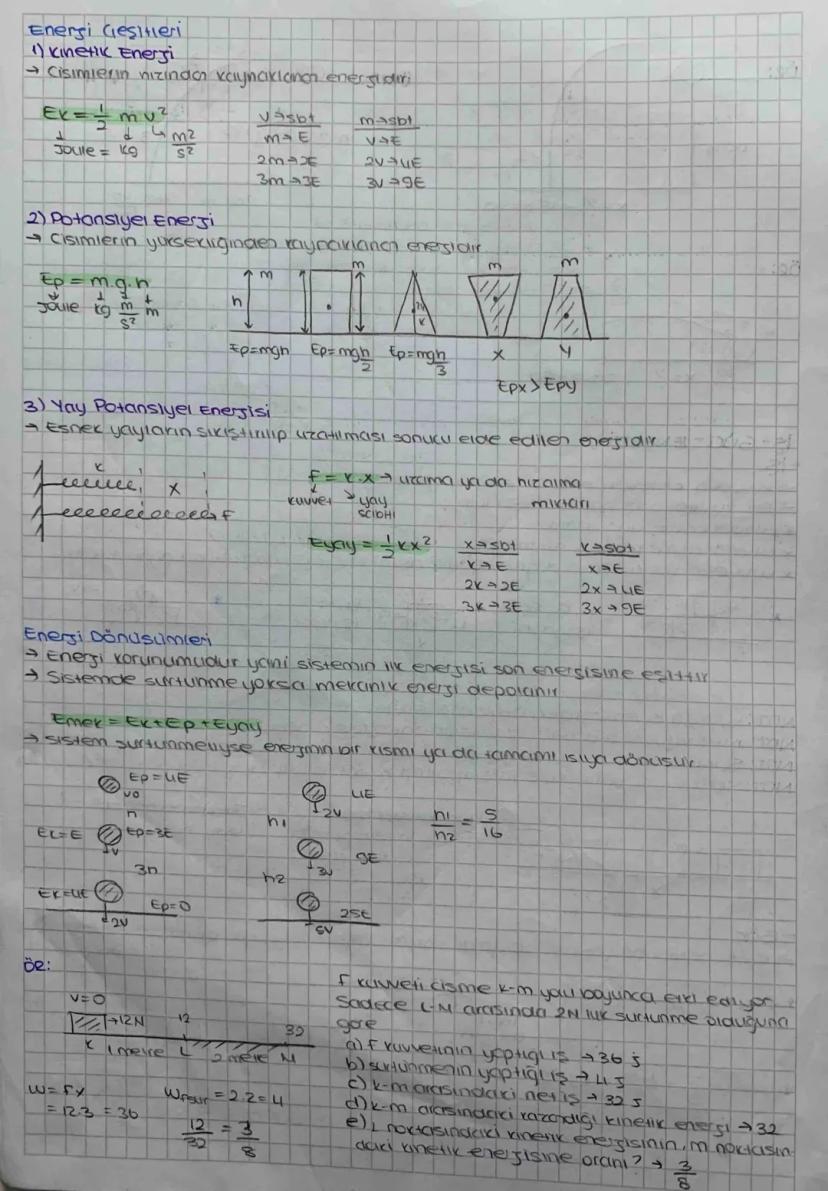 Energi Çeşitleri
1) Kinetik Enerji
→ Cisimlerin hızından kaynaklanan enerjidir.
Ek = 1/2 m v²
Joule = kg m²/s²
v→sbt m→sbt
m→E v→E
2m→2E 2v→4E
3m→3E 3v→9E
2) Potansiyel Enerji
→ Cisimlerin yüksekliğinden kaynaklanan enerjidir
Ep = m.g.h
Joule kg m/s² m
m m m m
h
Ep=mgh Ep=mgh/2 Ep=mgh/3 X Y
Epx > Epy
3) Yay Potansiyel Enerjisi
→ Esnek yayların sıkıştırılıp uzatılması sonucu elde edilen enerjidir
k
x
F
F = k.x → uzama ya da
kuvvet yay
miktarı
Eyay = 1/2 kx²
x→sbt k→sbt
k→E x→E
2k→2E 2x→4E
3k→3E 3x→9E
Enerji Dönüşümleri
→ Enerji korunumudur yani sistemin ilk enerjisi son enerjisine eşittir
→ Sistemde sürtünme yoksa mekanik enerji depolanır
Emek = Ek+Ep+Eyay
→ sistem sürtünmeliyse enerjinin bir kısmı ya da tamamı ısıya dönüşür.
Ep=4E
v0
h
Ek=E Ep=3E
v
3h
Ek=4E Ep=0
2v
4E
2v
h1
9E
3v
h2
25E
5v
h1/h2 = 5/16
ÖR:
v=0
→12N 12 32
K 1 metre L 2 metre M
W=Fx
= 12.3 = 36
= 2.2 = 4
12/32 = 3/8
F kuvveti cisme K-M yolu boyunca etki ediyor
Sadece L-M arasında 2N luk sürtünme olduğuna
göre
a) F kuvvetinin yaptığı iş → 36 J
b) sürtünmenin yaptığı iş → 4J
c) K-M arasındaki net iş → 32 J
d) K-M arasındaki kazandığı kinetik enerji → 32
e) L noktasındaki kinetik enerjisinin, M noktasın
daki kinetik enerjisine oranı? → 3/8